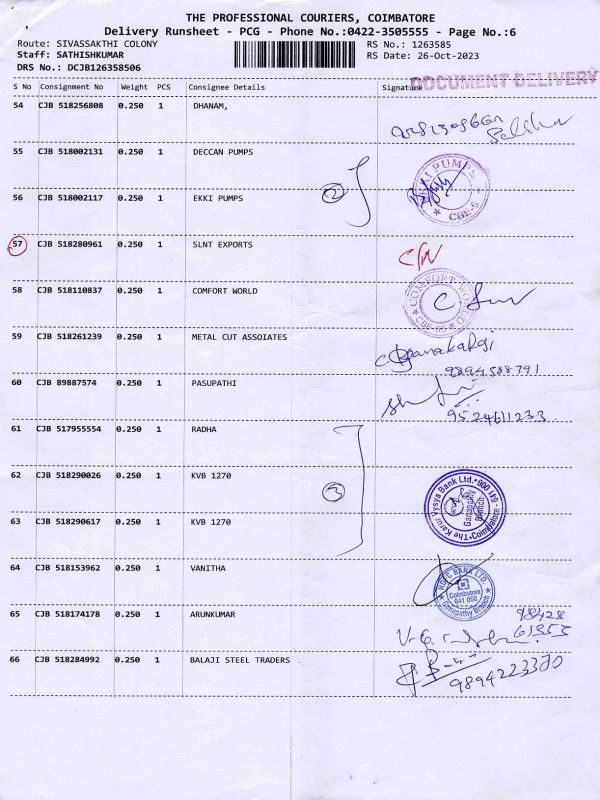 THE PROFESSIONAL COURIERS, COIMBATORE
Delivery Runsheet - PCG - Phone No.:0422-3505555 - Page No.:6
Route: SIVASSAKTHI COLONY RS No.: 1263585
Staff: SATHISHKUMAR RS Date: 26-Oct-2023
DRS No.: DCJB126358506
DOCUMENT DELIVERY
S No Consignment No Weight PCS Consignee Details Signature
54 CJB 518256808 0.250 1 DHANAM,
55 CJB 518002131 0.250 1 DECCAN PUMPS
2
EKKI PUMPS CBE-6
56 CJB 518002117 0.250 1 EKKI PUMPS
57 CJB 518280961 0.250 1 SLNT EXPORTS
58 CJB 518110837 0.250 1 COMFORT WORLD
COMFORT WORLD
59 CJB 518261239 0.250 1 METAL CUT ASSOIATES
9894588791
60 CJB 89887574 0.250 1 PASUPATHI
9524611233
61 CJB 517955554 0.250 1 RADHA
62 CJB 518290026 0.250 1 KVB 1270
3
The Karur Vysya Bank Ltd. Ganapathy Branch Coimbatore - 641 006
63 CJB 518290617 0.250 1 KVB 1270
64 CJB 518153962 0.250 1 VANITHA
HDFC BANK LTD. Coimbatore 641 006 Ganapathy Branch
65 CJB 518174178 0.250 1 ARUNKUMAR
98428
61353
66 CJB 518284992 0.250 1 BALAJI STEEL TRADERS
9894223370